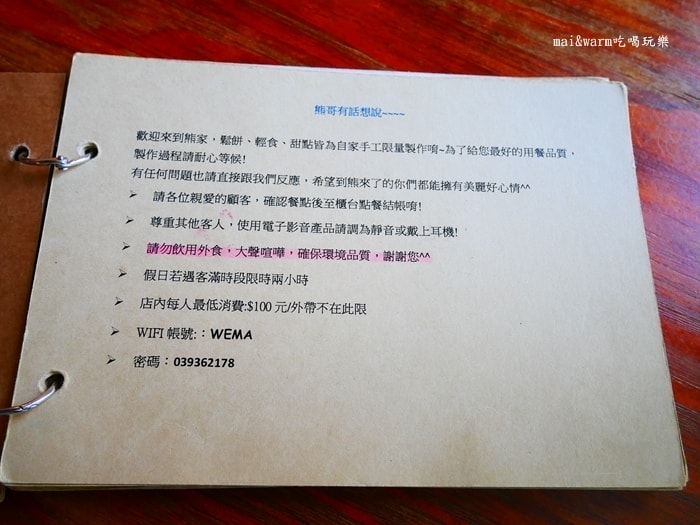 mai&warm吃喝玩樂
熊哥有話想說~~~~
歡迎來到熊家，鬆餅、輕食、甜點皆為自家手工限量製作唷~為了給您最好的用餐品質，
製作過程請耐心等候!
有任何問題也請直接跟我們反應，希望到熊來了的你們都能擁有美麗好心情^^
➢ 請各位親愛的顧客，確認餐點後至櫃台點餐結帳唷!
➢ 尊重其他客人，使用電子影音產品請調為靜音或戴上耳機!
➢ 請勿飲用外食，大聲喧嘩，確保環境品質，謝謝您^^
➢ 假日若遇客滿時段限時兩小時
➢ 店內每人最低消費:$100 元/外帶不在此限
➢ WIFI 帳號:：WEMA
➢ 密碼：039362178